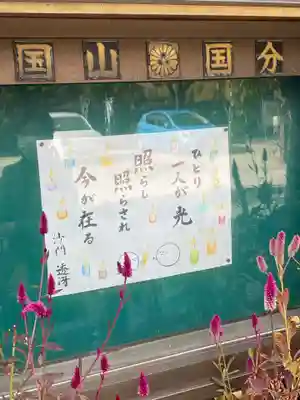 国山国分
ひとり
一人が光
照らし
照らされ
今が在る
沙門